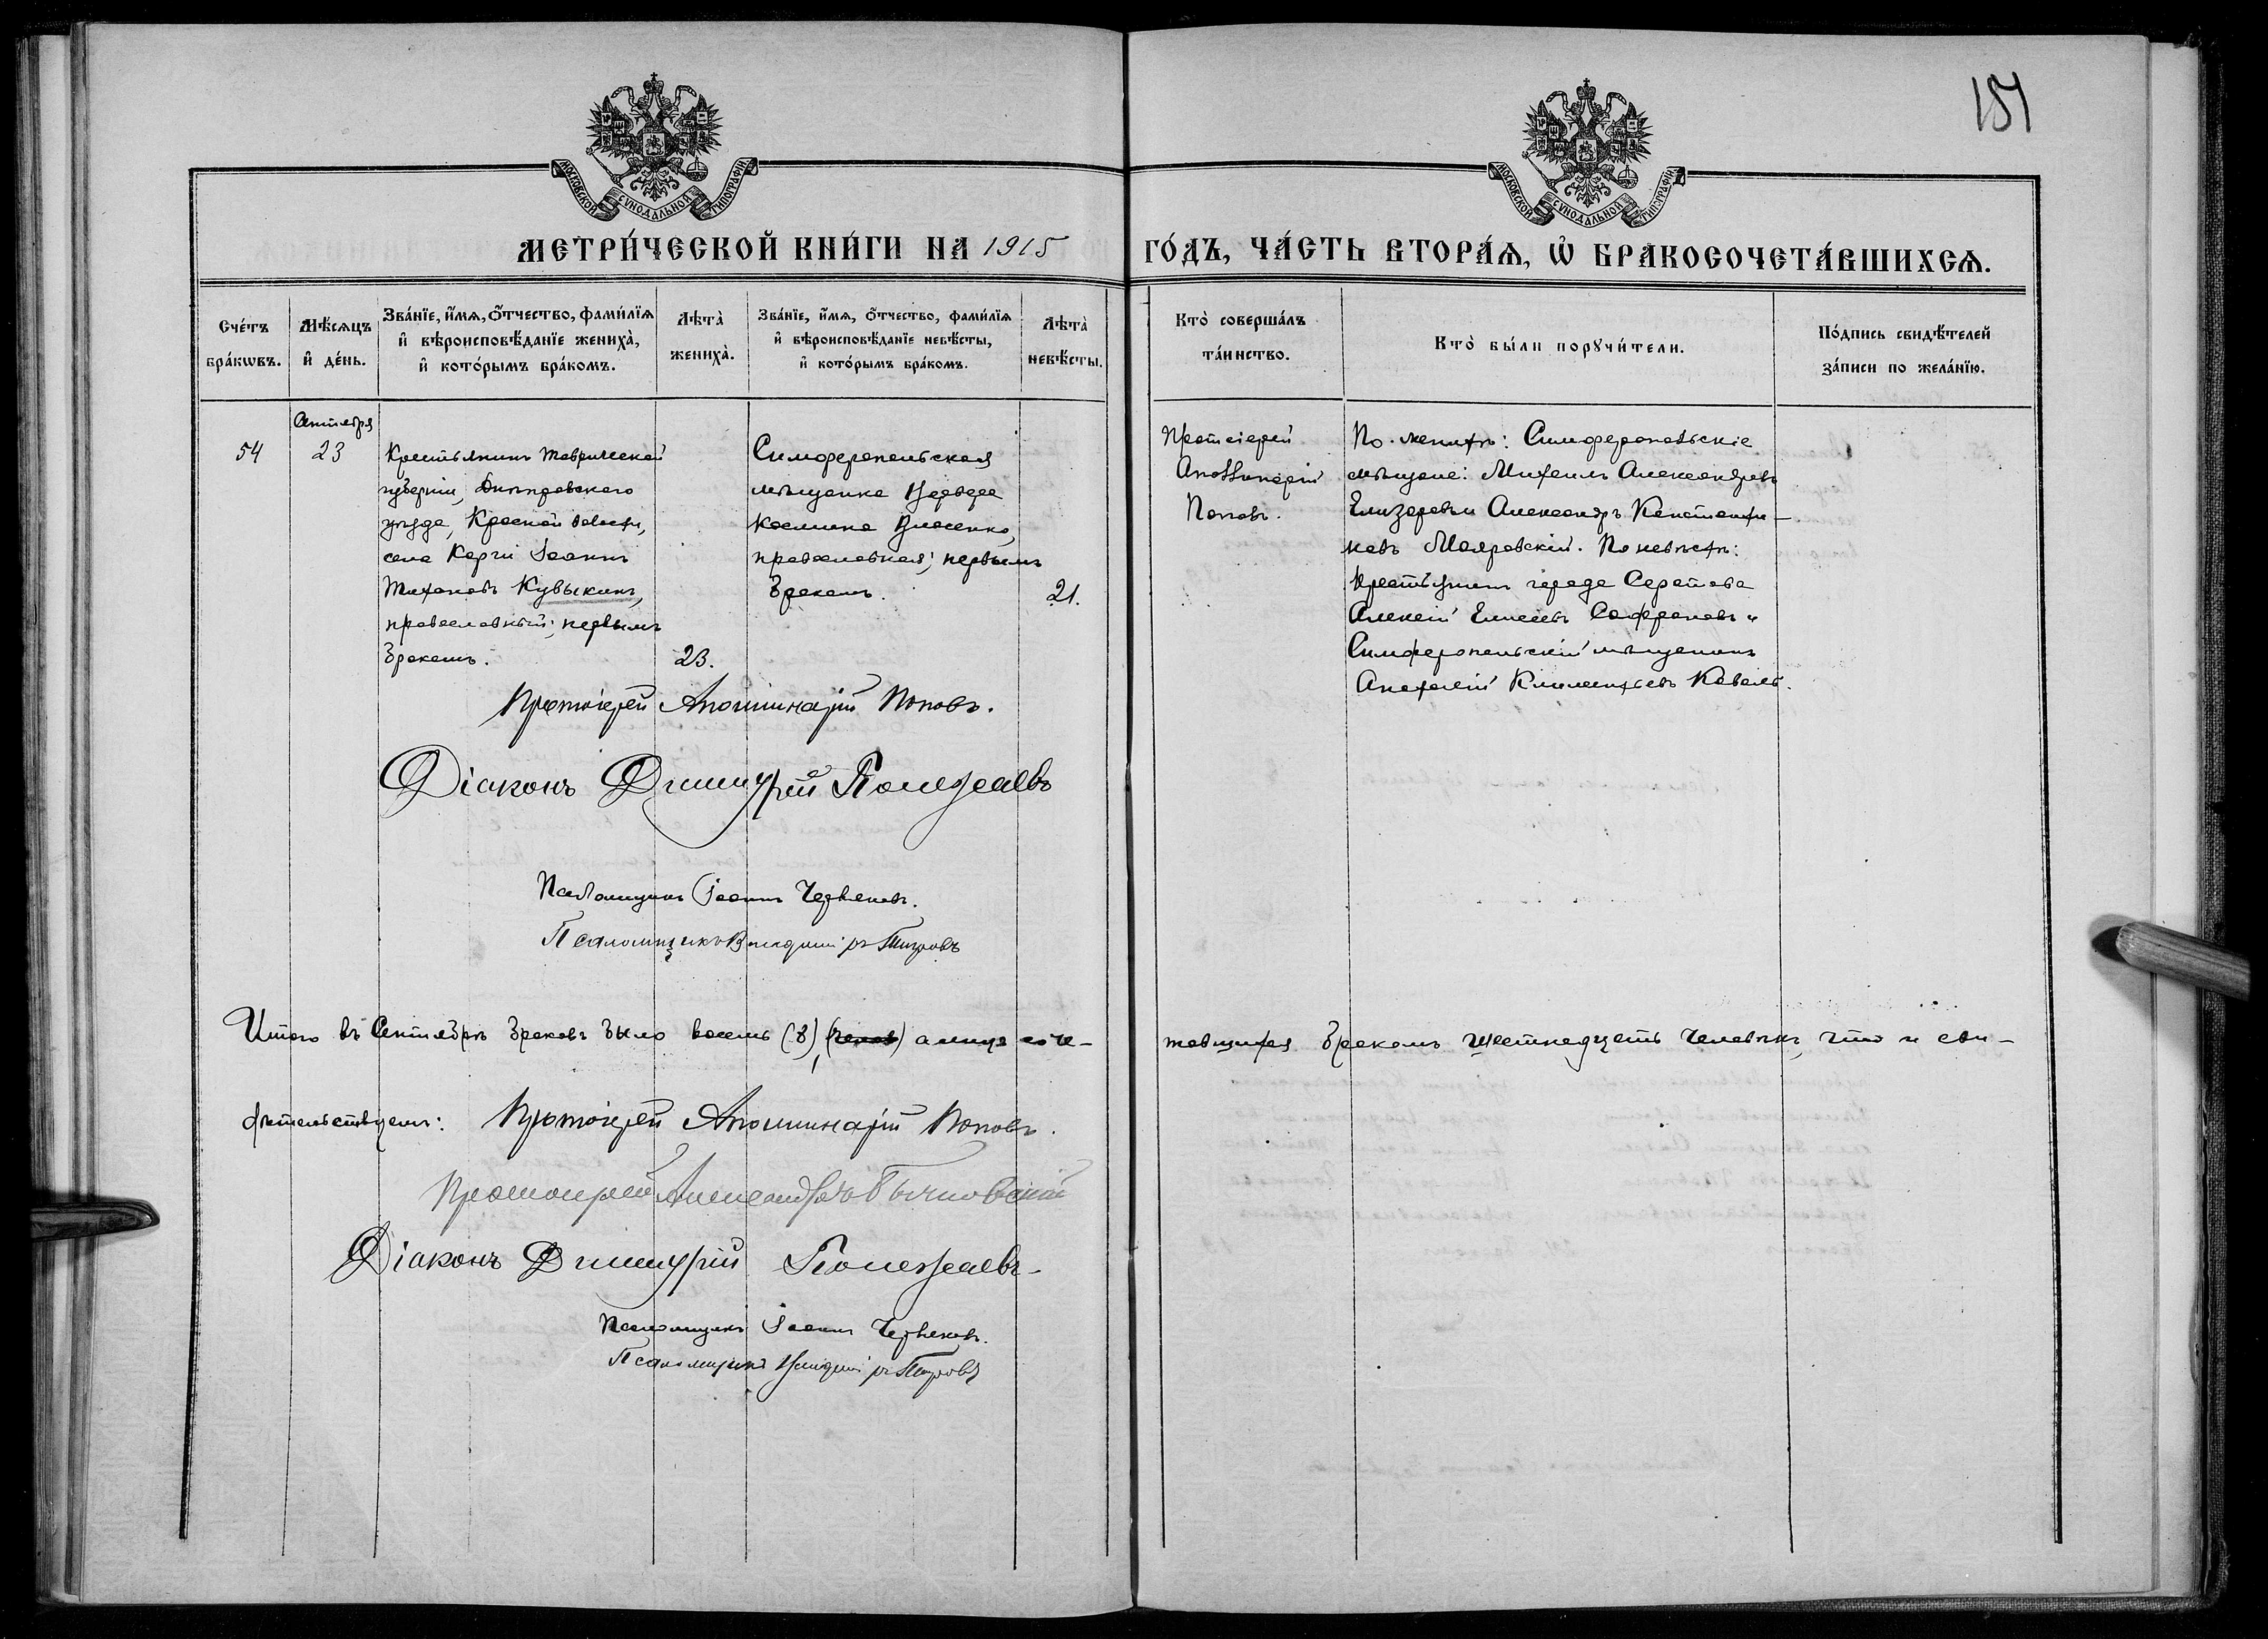 151
МОСКОВСКОЙ СѴНОДАЛЬНОЙ ТИПОГРАФІИ
МОСКОВСКОЙ СѴНОДАЛЬНОЙ ТИПОГРАФІИ
МЕТРИ́ЧЕСКОЙ КНИ́ГИ НА 1915
ГО́ДЪ, ЧА́СТЬ ВТОРА́Ѧ, Ѽ БРАКОСОЧЕТА́ВШИХСѦ.
Сче́тъ бра́кѡвъ.
Мѣ́сѧцъ и҆ де́нь.
Зва́нїе, и҆́мѧ, ѻ҆́тчество, фами́лїѧ и҆ вѣроисповѣ́данїе жениха̀, и҆ кото́рымъ бра́комъ.
Лѣта̀ жениха̀.
Зва́нїе, и҆́мѧ, ѻ҆́тчество, фами́лїѧ и҆ вѣроисповѣ́данїе невѣ́сты, и҆ кото́рымъ бра́комъ.
Лѣта̀ невѣ́сты.
Кто̀ соверша́лъ та́инство.
Кто̀ бы́ли порꙋчи́тели.
По́дпись свидѣ́телей за́писи по жела́нїю.
54
Сентября
23
Крестьянинъ Таврической
губерніи, Днѣпровскаго
уѣзда, Красной волости,
села Карги Іоаннъ
Тихоновъ Кувыкинъ,
православный; первымъ
бракомъ.
23.
Симферопольская
мѣщанка Варвара
Космина Власенко,
православная; первымъ
бракомъ.
21.
Протоіерей
Аполлинарій
Поповъ.
По женихѣ: Симферопольскіе
мѣщане: Михаилъ Александровъ
Елизаровъ и Александръ Константи-
новъ Мояровскій. По невѣстѣ:
Крестьянинъ города Саратова
Алексѣй Елисеевъ Сафроновъ и
Симферопольскій мѣщанинъ
Анатолій Климентьевъ Коваль.
Протоіерей Аполлинарій Поповъ.
Діаконъ Димитрій Полежаевъ
Псаломщикъ Іоаннъ Червяковъ.
Псаломщикъ Владиміръ Петровъ
Итого въ Сентябрѣ браковъ было восемь (8), а лицъ соче-
тавшихся бракомъ шестнадцать человѣкъ, что и сви-
дѣтельствуемъ: Протоіерей Аполлинарій Поповъ.
Протоиерей Александръ Бычковскій
Діаконъ Димитрій Полежаевъ
Псаломщикъ Іоаннъ Червяковъ.
Псаломщикъ Владиміръ Петровъ